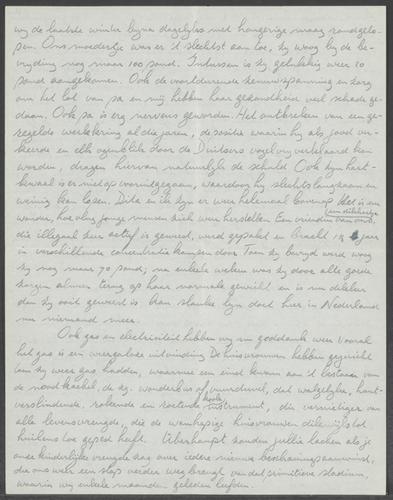 wij de laatste winter bijna dagelijks met hongerige maag rondgelo-
pen. Ons moedertje was er 't slechtst aan toe, zij woog bij de be-
vrijding nog maar 100 pond. Intussen is zij gelukkig weer 10
pond aangekomen. Ook de voortdurende zenuwspanning en zorg
om het lot van pa en mij hebben haar gezondheid veel schade ge-
daan. Ook pa is erg nerveus geworden. Het ontbreken van een ge-
regelde werkkring al die jaren, de positie waarin hij als jood ver-
keerde en elk ogenblik door de Duitsers vogelvrij verklaard kon
worden, dragen hiervan natuurlijk de schuld. Ook zijn hart-
kwaal is er niet op vooruitgegaan, waardoor hij slechts langzaam en
weinig kan lopen. Dita en ik zijn er weer helemaal bovenop. Het is een
wonder, hoe vlug jonge mensen zich weer herstellen. Een vriendin van ons,
die illegaal zeer actief is geweest, werd gepakt en bracht 1½ jaar
in verschillende concentratiekampen door. Toen zij bevrijd werd woog
zij nog maar 70 pond; na enkele weken was zij door alle goede
zorgen alweer terug op haar normale gewicht en is nu dikker
dan zij ooit geweest is. Aan slanke lijn doet hier in Nederland
nu niemand meer.
Ook gas en electriciteit hebben wij nu goddank weer. Vooral
het gas is een onvergelijke uitvinding. De huisvrouwen hebben gejuicht
toen zij weer gas hadden, waarmee een eind kwam aan 't bestaan van
de noodkachel, de zg. wonderbus of vuurduivel, dat walgelijke, hout-
verslindende, rokende en roetende kook instrument, die vernietiger van
alle levensvreugde, die de wanhopige huisvrouwen dikwijls tot
huilens toe gebracht heeft. Überhaupt zouden jullie lachen als je
onze kinderlijke vreugde zag over iedere nieuwe beschavingsaanwinst,
die ons weer een stap verder weg brengt van dat primitieve stadium,
waarin wij enkele maanden geleden leefden.